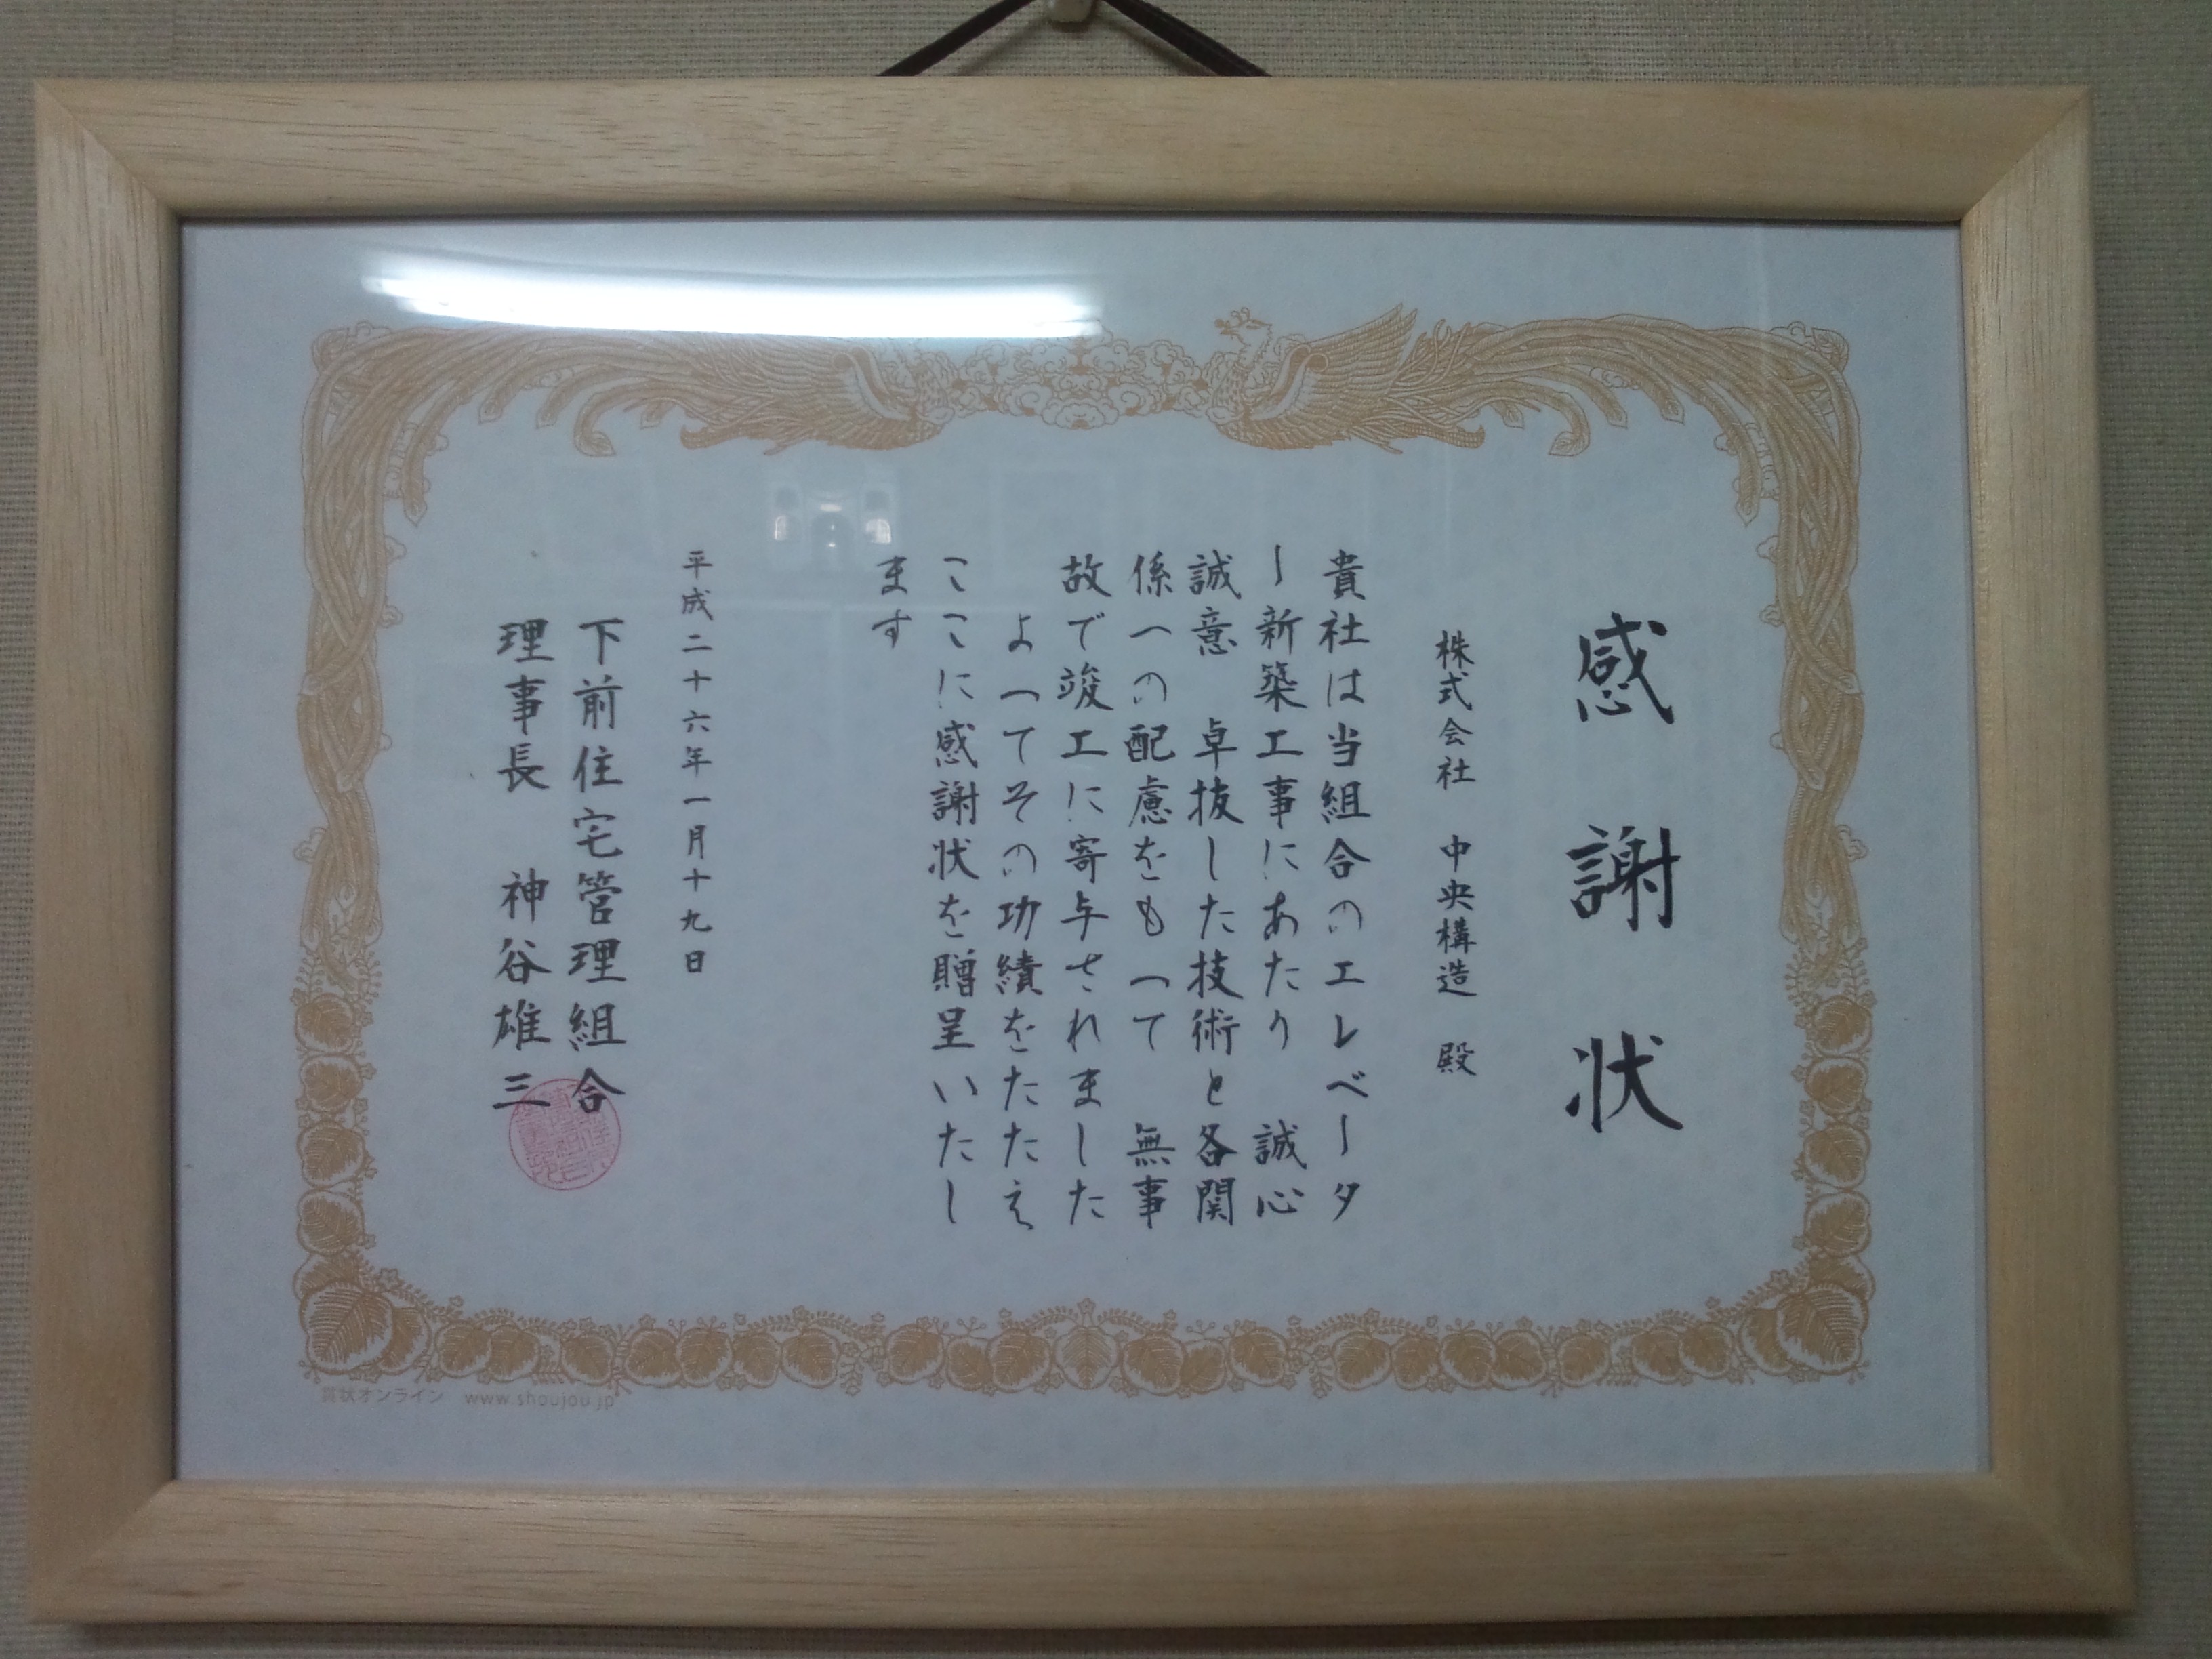 感謝状
株式会社 中央構造 殿
貴社は当組合のエレベータ
ー新築工事にあたり 誠心
誠意 卓抜した技術と各関
係への配慮をもって 無事
故で竣工に寄与されました
よってその功績をたたえ
ここに感謝状を贈呈いたし
ます
平成二十六年一月十九日
下前住宅管理組合
理事長 神谷雄三
賞状オンライン www.shoujou.jp